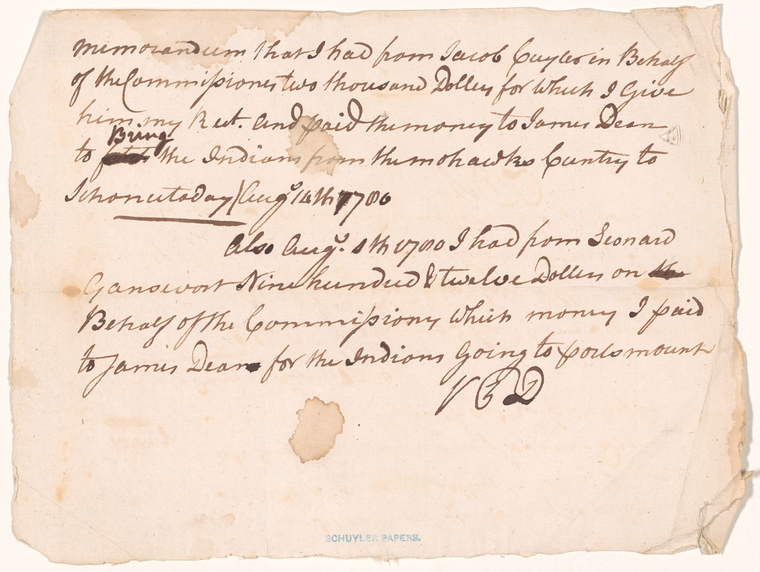 Memorandum that I had from Jacob Cuyler in Behalf
of the Commissiones two thousand Dollers for which I Give
him my Reit. and paid the money to James Dean
Bring
to the Indians from the mohawks Cuntry to
Schonectoday Augt 14th 1780
Also Augt. 1th 1780 I had from Leonard
Gansevort Nine hundred & twelve Dollers on the
Behalf of the Commissiony which money I paid
to James Dean for the Indians Going to portsmount
V C D
SCHUYLER PAPERS.